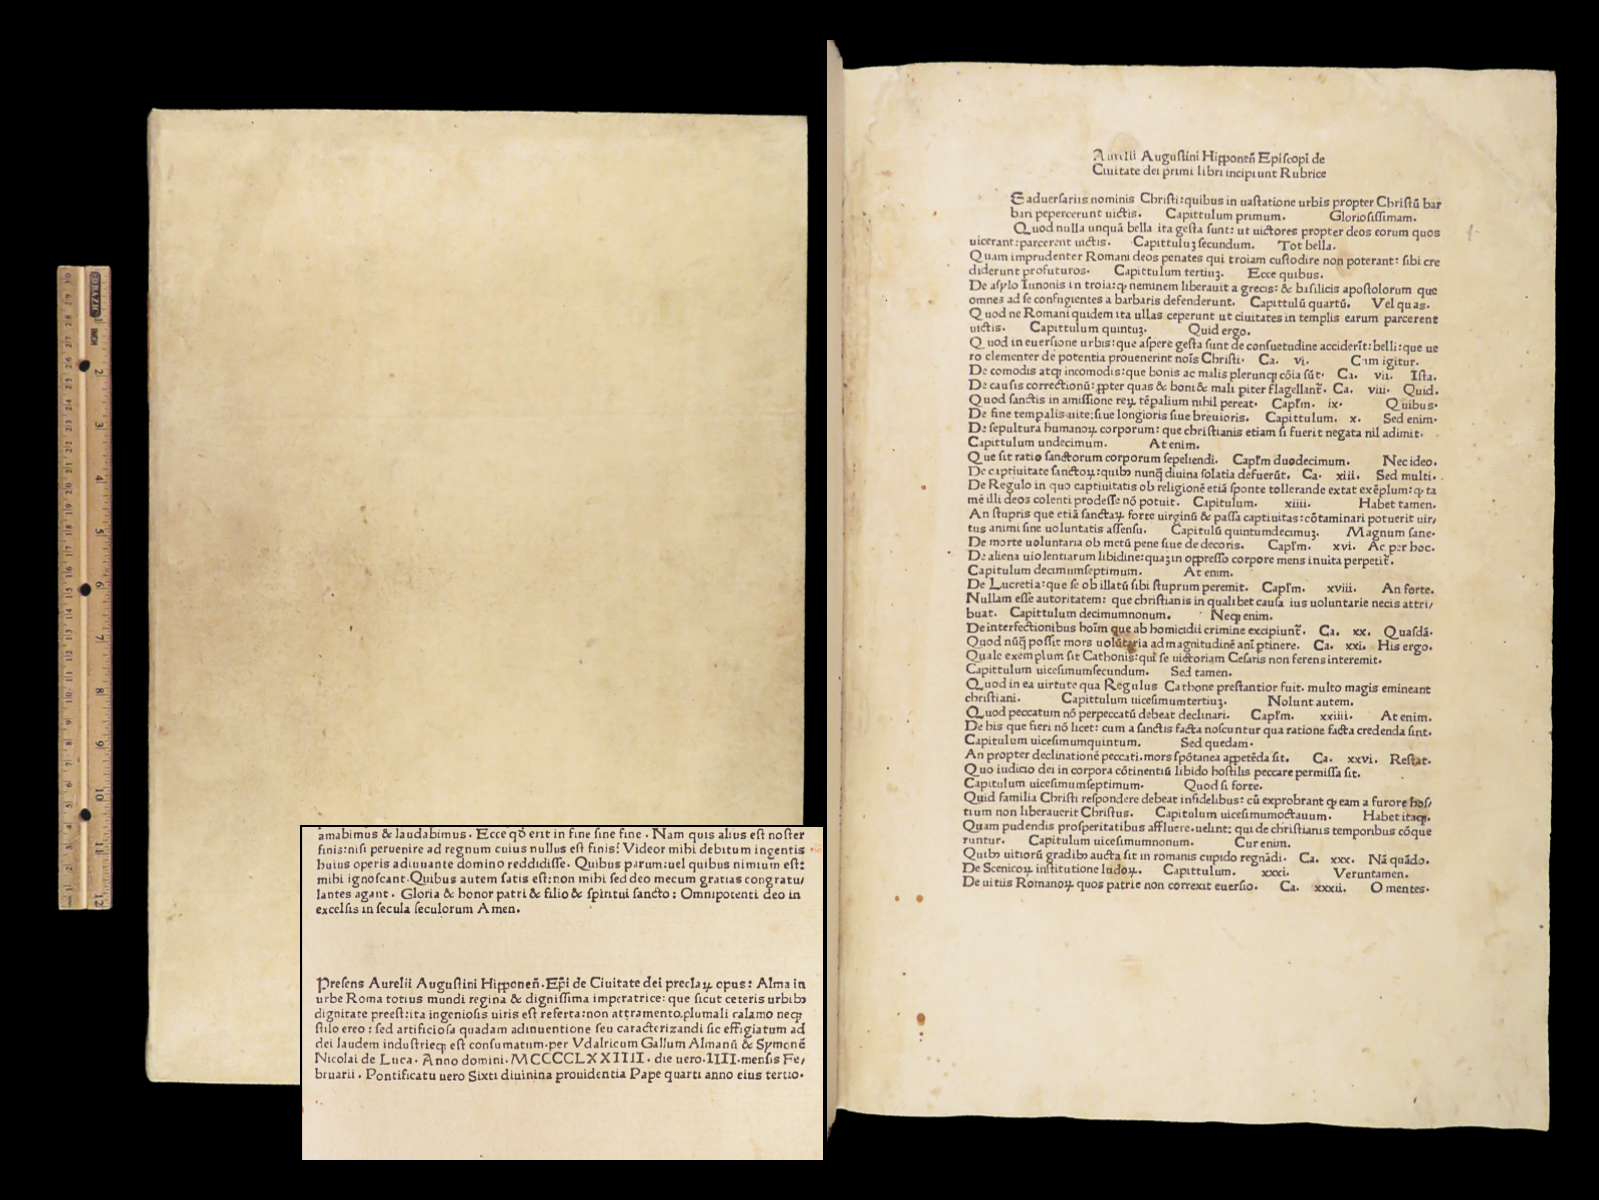 amabimus & laudabimus. Ecce qď erit in fine sine fine. Nam quis alius est noster
finis:nisi peruenire ad regnum cuius nullus est finis? Videor mihi debitum ingentis
huius operis adiuuante domino reddidisse. Quibus parum:uel quibus nimium est:
mihi ignoscant. Quibus autem satis est:non mihi sed deo mecum gratias congratu/
lantes agant. Gloria & honor patri & filio & spiritui sancto: Omnipotenti deo in
excelsis in secula seculorum Amen.
Presens Aurelii Augustini Hipponeñ. Ep̃i de Ciuitate dei preclaꝝ opus: Alma in
urbe Roma totius mundi regina & dignissima imperatrice: que sicut ceteris urbibꝫ
dignitate preest:ita ingeniosis uiris est referta:non attramento.plumali calamo neqꝫ
stilo ereo: sed artificiosa quadam adinuentione seu caracterizandi sic effigiatum ad
dei laudem industrieqꝫ est consumatum.per Vdalricum Gallum Almanū & Symonē
Nicolai de Luca. Anno domini. MCCCCLXXIIII. die uero.IIII.mensis Fe/
bruarii. Pontificatu uero Sixti diuinina prouidentia Pape quarti anno eius tertio.
Aurelii Augustini Hipponeñ Episcopi de
Ciuitate dei primi libri incipiunt Rubrice
E aduersariis nominis Christi:quibus in uastatione urbis propter Christū bar
bari pepercerunt uictis. Capittulum primum. Gloriosissimam.
Quod nulla unquā bella ita gesta sunt: ut uictores propter deos eorum quos
uicerant:parcerent uictis. Capittuluꝫ secundum. Tot bella.
Quam imprudenter Romani deos penates qui troiam custodire non poterant: sibi cre
diderunt profuturos. Capittulum tertiuꝫ. Ecce quibus.
De asylo Iunonis in troia:qꝫ neminem liberauit a grecis: & basilicis apostolorum que
omnes ad se confugientes a barbaris defenderunt. Capittulū quartū. Vel quas.
Quod ne Romani quidem ita ullas ceperunt ut ciuitates in templis earum parcerent
uictis. Capittulum quintuꝫ. Quid ergo.
Quod in euersione urbis:que aspere gesta sunt de consuetudine acciderīt:belli:que ue
ro clementer de potentia prouenerint noīs Christi. Ca. vi. Cum igitur.
De comodis atqꝫ incomodis:que bonis ac malis plerunqꝫ cōia sūt. Ca. vii. Ista.
De causis correctionū:ꝓpter quas & boni & mali piter flagellant̃. Ca. viii. Quid.
Quod sanctis in amissione reꝝ tēpalium nihil pereat. Capl̃m. ix. Quibus.
De fine tempalis uite:siue longioris siue breuioris. Capittulum. x. Sed enim.
De sepultura humanoꝝ corporum: que christianis etiam si fuerit negata nil adimit.
Capittulum undecimum. At enim.
Que sit ratio sanctorum corporum sepeliendi. Capl̃m duodecimum. Nec ideo.
De captiuitate sanctoꝝ:quibꝫ nunq̃ diuina solatia defuerūt. Ca. xiii. Sed multi.
De Regulo in quo captiuitatis ob religionē etiā sponte tollerande extat exēplum:qꝫ ta
mē illi deos colenti prodesse nō potuit. Capitulum. xiiii. Habet tamen.
An stupris que etiā sanctaꝝ forte uirginū & passa captiuitas:cōtaminari potuerit uir/
tus animi sine uoluntatis assensu. Capitulū quintumdecimuꝫ. Magnum sane.
De morte uoluntaria ob metū pene siue de decoris. Capl̃m. xvi. Ac per hoc.
De aliena uiolentiarum libidine:quaꝫ in oppresso corpore mens inuita perpetit̃.
Capitulum decimumseptimum. At enim.
De Lucretia:que se ob illatū sibi stuprum peremit. Capl̃m. xviii. An forte.
Nullam esse autoritatem: que christianis in qualibet causa ius uoluntarie necis attri/
buat. Capittulum decimumnonum. Neqꝫ enim.
De interfectionibus hoīm que ab homicidii crimine excipiunt̃. Ca. xx. Quasdā.
Quod nūq̃ possit mors uolūtaria ad magnitudinē anī ptinere. Ca. xxi. His ergo.
Quale exemplum sit Cathonis:qui se uictoriam Cesaris non ferens interemit.
Capittulum uicesimumsecundum. Sed tamen.
Quod in ea uirtute qua Regulus Cathone prestantior fuit. multo magis emineant
christiani. Capittulum uicesimumtertiuꝫ. Nolunt autem.
Quod peccatum nō perpeccatū debeat declinari. Capl̃m. xxiiii. At enim.
De his que fieri nō licet: cum a sanctis facta noscuntur qua ratione facta credenda sint.
Capitulum uicesimumquintum. Sed quedam.
An propter declinationē peccati.mors spōtanea appetēda sit. Ca. xxvi. Restat.
Quo iudicio dei in corpora cōtinentiū libido hostilis peccare permissa sit.
Capitulum uicesimumseptimum. Quod si forte.
Quid familia Christi respondere debeat infidelibus: cū exprobrant qꝫ eam a furore hos/
tium non liberauerit Christus. Capitulum uicesimumoctauum. Habet itaqꝫ.
Quam pudendis prosperitatibus affluere.uelint: qui de christianis temporibus cōque
runtur. Capitulum uicesimumnonum. Cur enim.
Quibꝫ uitiorū gradibꝫ aucta sit in romanis cupido regnādi. Ca. xxx. Nā quādo.
De Scenicoꝝ institutione ludoꝝ. Capittulum. xxxi. Veruntamen.
De uitiis Romanoꝝ quos patrie non correxit euersio. Ca. xxxii. O mentes.